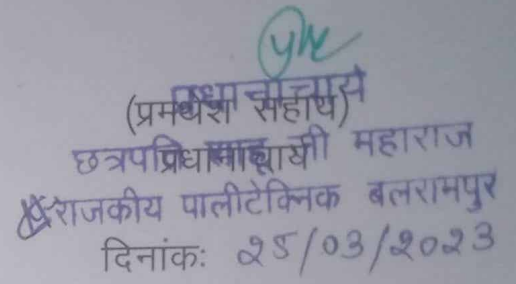 (प्रमथेश सहाय)
प्रधानाचार्य
छत्रपति शाहू जी महाराज
राजकीय पालीटेक्निक बलरामपुर
दिनांकः २५/०३/२०२३